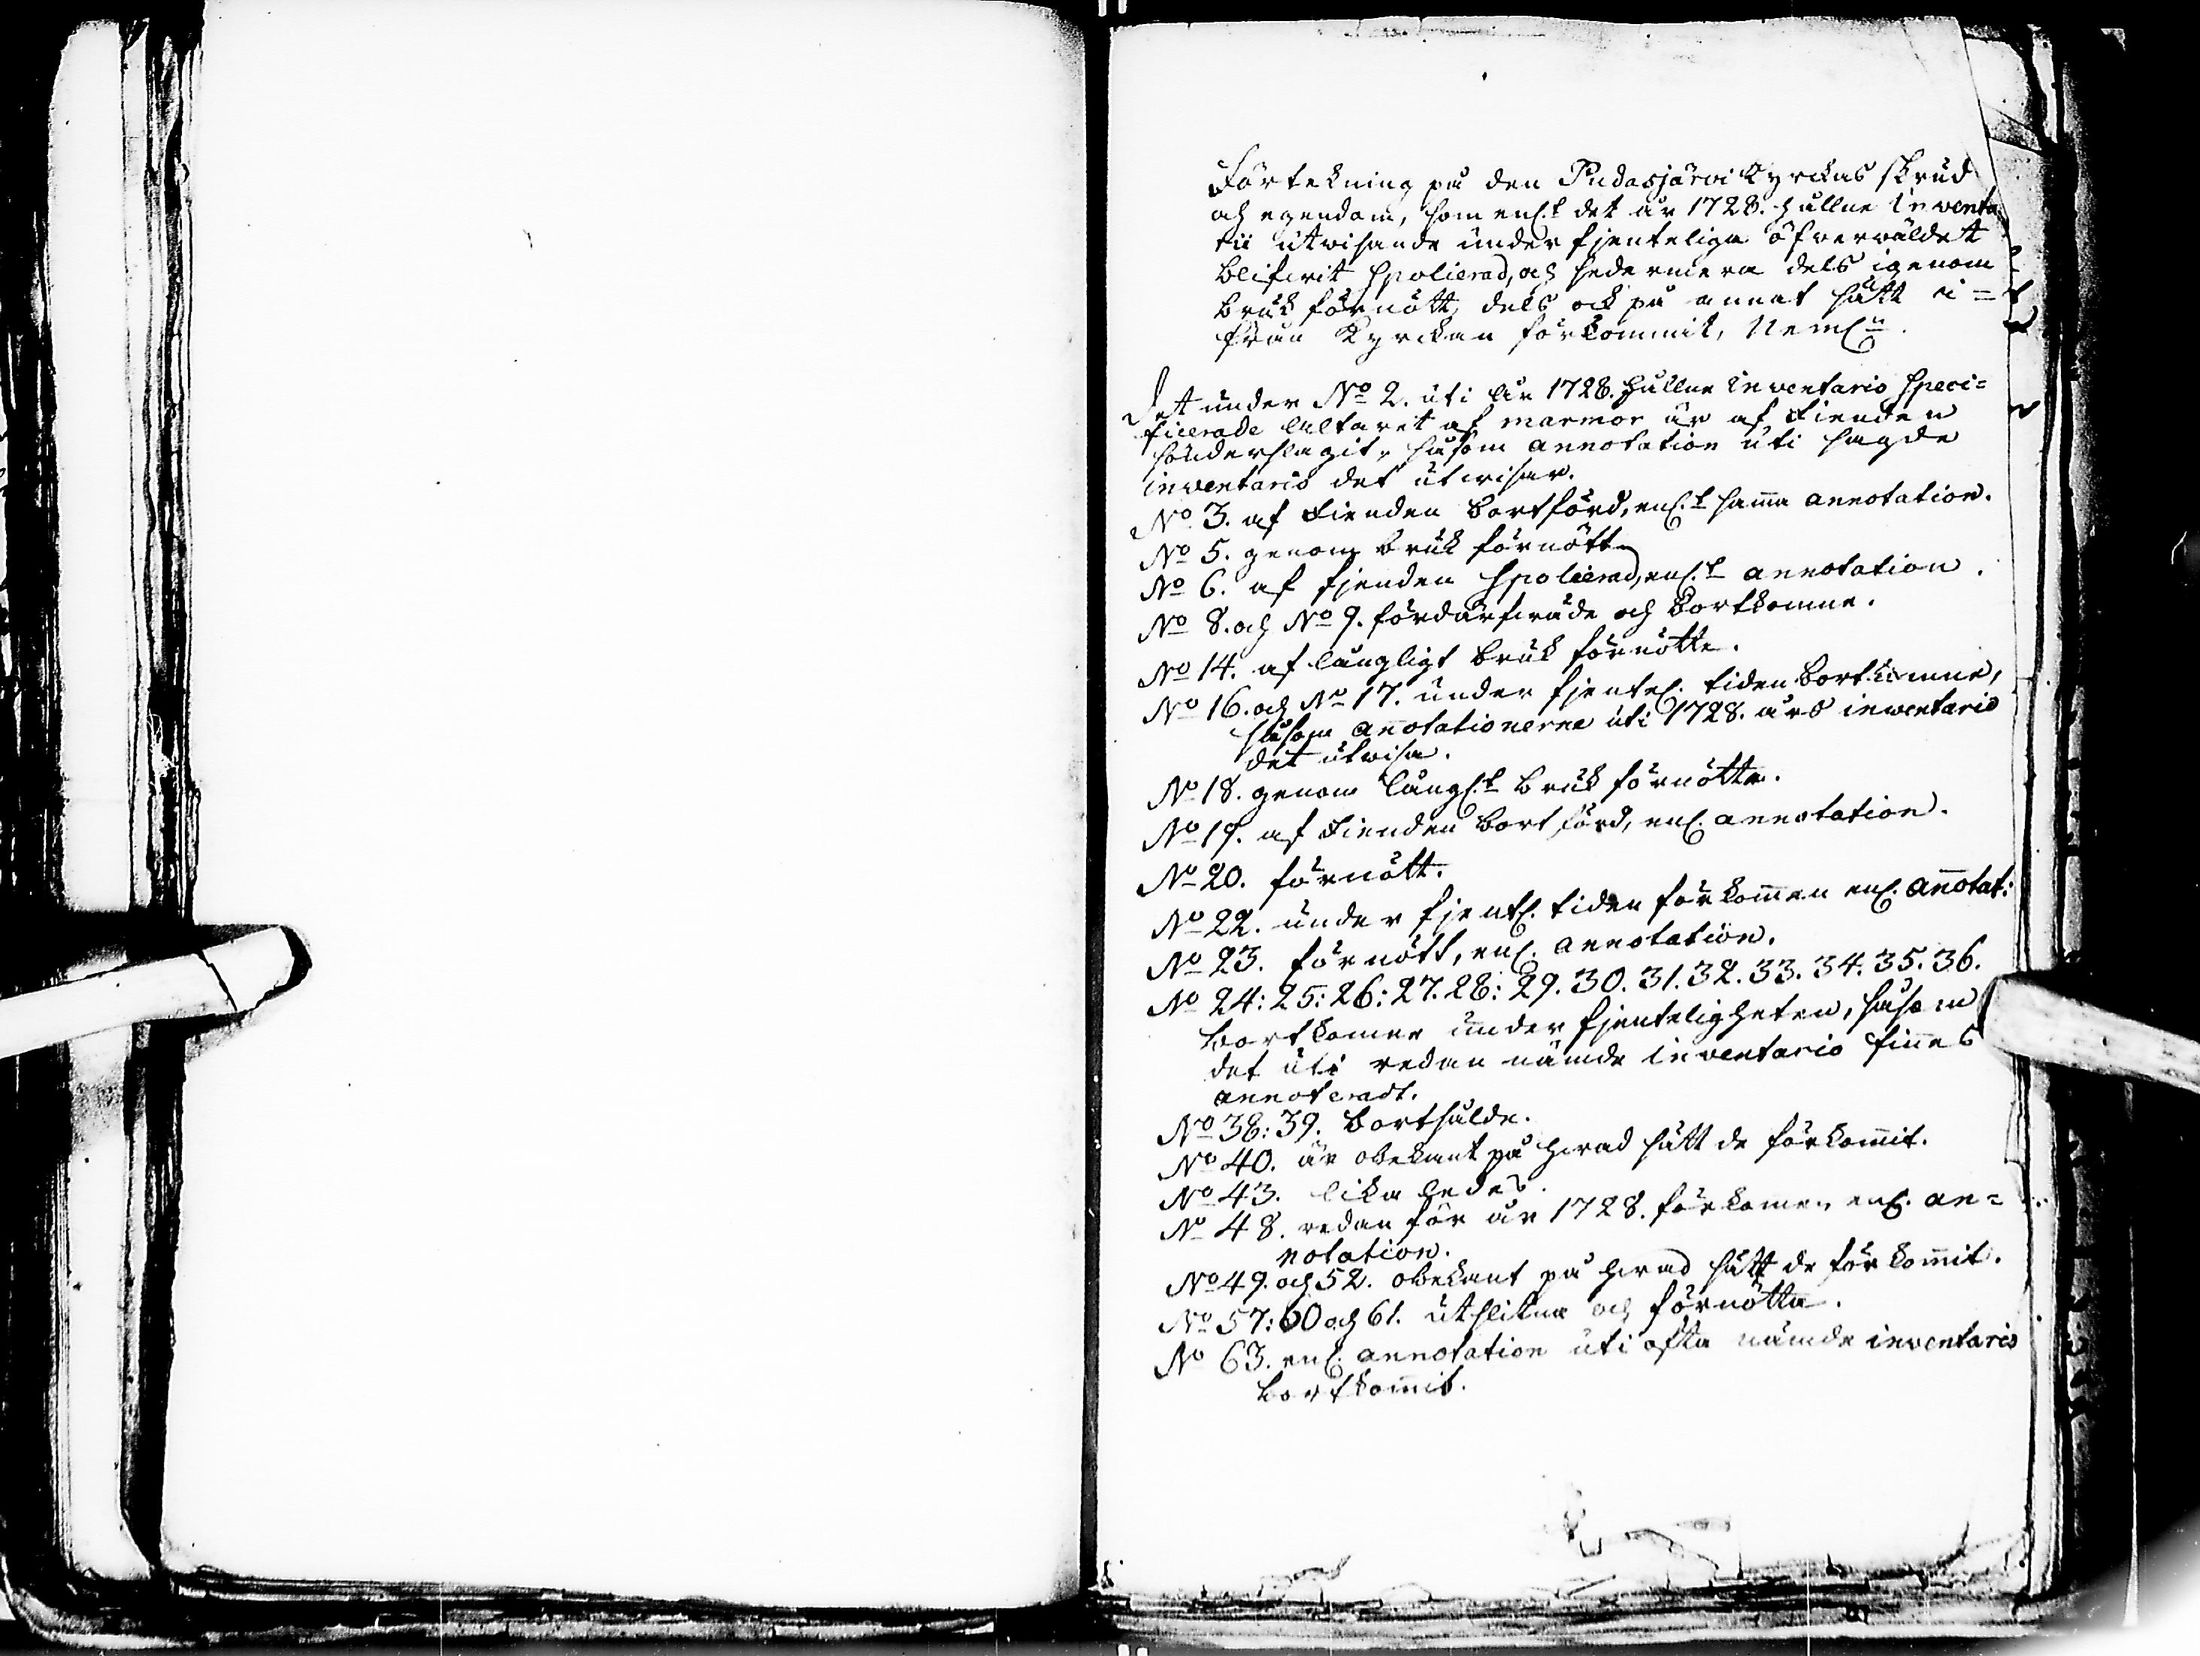 Förtekning på den Pudasjärvi Kyrckas skrud
och egendom, som enl.t det år 1728. hållne Inventa
rii utwisande under fjenteliga öfverväldet
blifvit Spolierad, och sedermera dels igenom
bruk förnött, dels ock på annat sätt i=
från Kyrckan förkommit, Neml:n.
Det under No 2. uti år 1728. hållne Inventario Speci=
ficerade altaret af marmor är af Fienden
sönderslagit, såsom annotation uti sagde
inventario det utwisar.
No 3. af Fienden bortförd, enl.t samma annotation.
No 5. genom bruk förnött
No 6. af fjenden Spolierad, enl.t annotation.
No 8. och No 9. fördärfvade och bortkomne.
No 14. af långligt bruk förnötte.
No 16. och No 17. under fjentel. tiden bortkomne,
såsom annotationerne uti 1728. års inventario
det utwisa.
No 18. genom långl.t bruk förnötte.
No 19. af Fienden bortförd, enl. annotation.
No 20. förnött.
No 22. under fjentl. tiden förkommen enl. annotat:
No 23. förnött, enl. annotation.
No 24: 25: 26: 27. 28: 29. 30. 31. 32. 33. 34. 35. 36.
bortkomne under fjenteligheten, såsom
det uti redan nämde inventario finnes
annoteradt.
No 38: 39. bortsålde.
No 40. är obekant på hvad sätt de förkommit.
No 43. lika ledes.
No 48. redan för år 1728. förkommen enl. an=
notation.
No 49. och 52. obekant på hvad sätt de förkommit.
No 57: 60 och 61. utslitne och förnötta.
No 63. enl. annotation uti ofta nämde inventario
bortkommit.